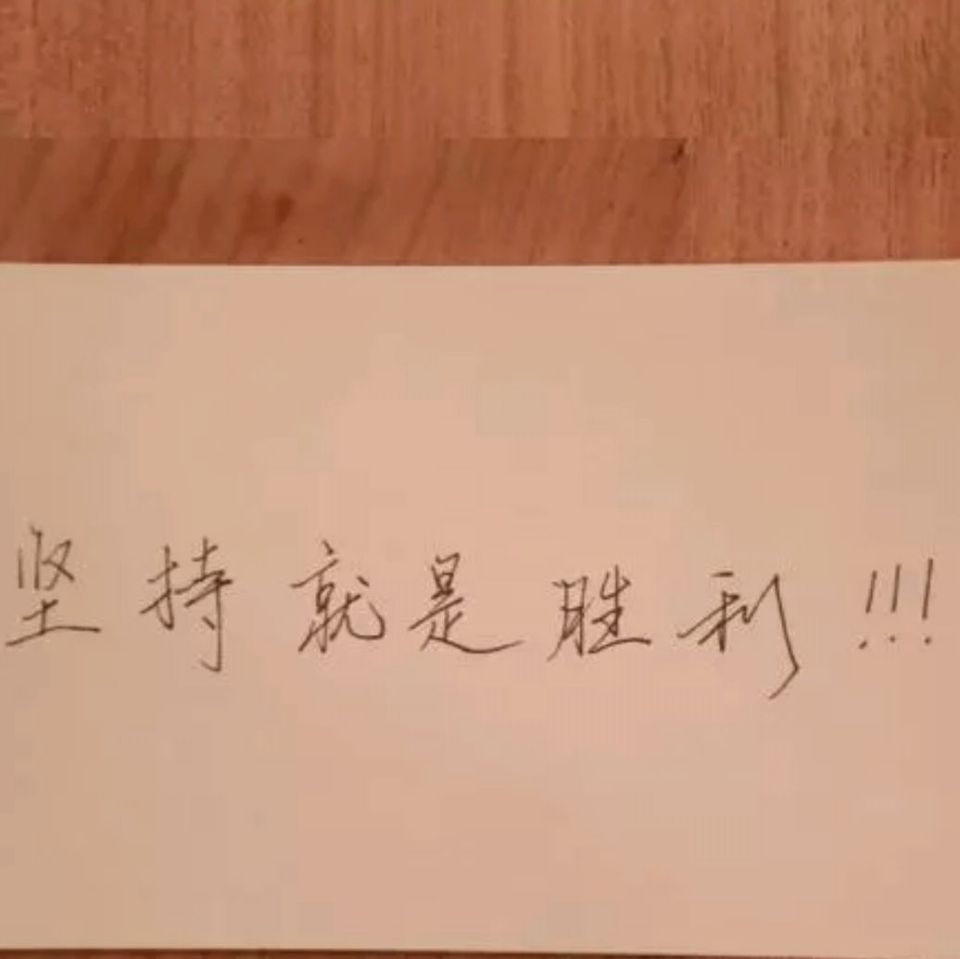 坚持就是胜利!!!